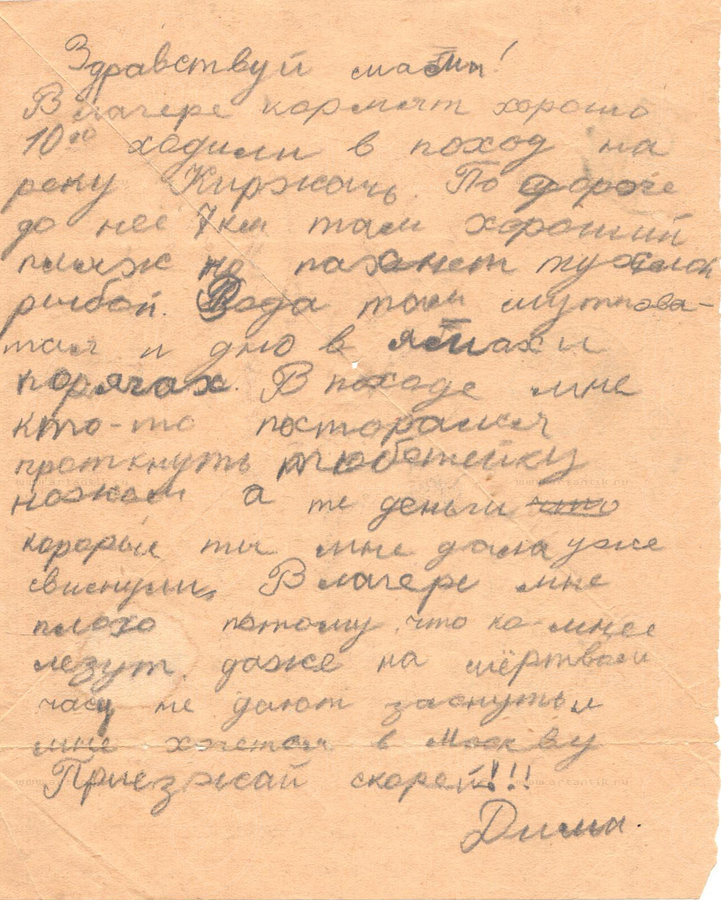 Здравствуй мама!
В лагере кормят хорошо
10го ходили в поход на
реку Киржачь. По дороге
до нее 7км там хороший
пляж но пахнет тухлой
рыбой. Вода там мутнова-
тая и дно в ямах и
корягах. В походе мне
кто-то постарался
проткнуть тюбетейку
ножом а те деньги что
корорые ты мне дала уже
свиснули. В лагере мне
плохо потому, что ко-мнее
лезут даже на мёртвом
часу не дают заснуть и
мне хочется в Москву
Приезжай скорей!!!
Дима.